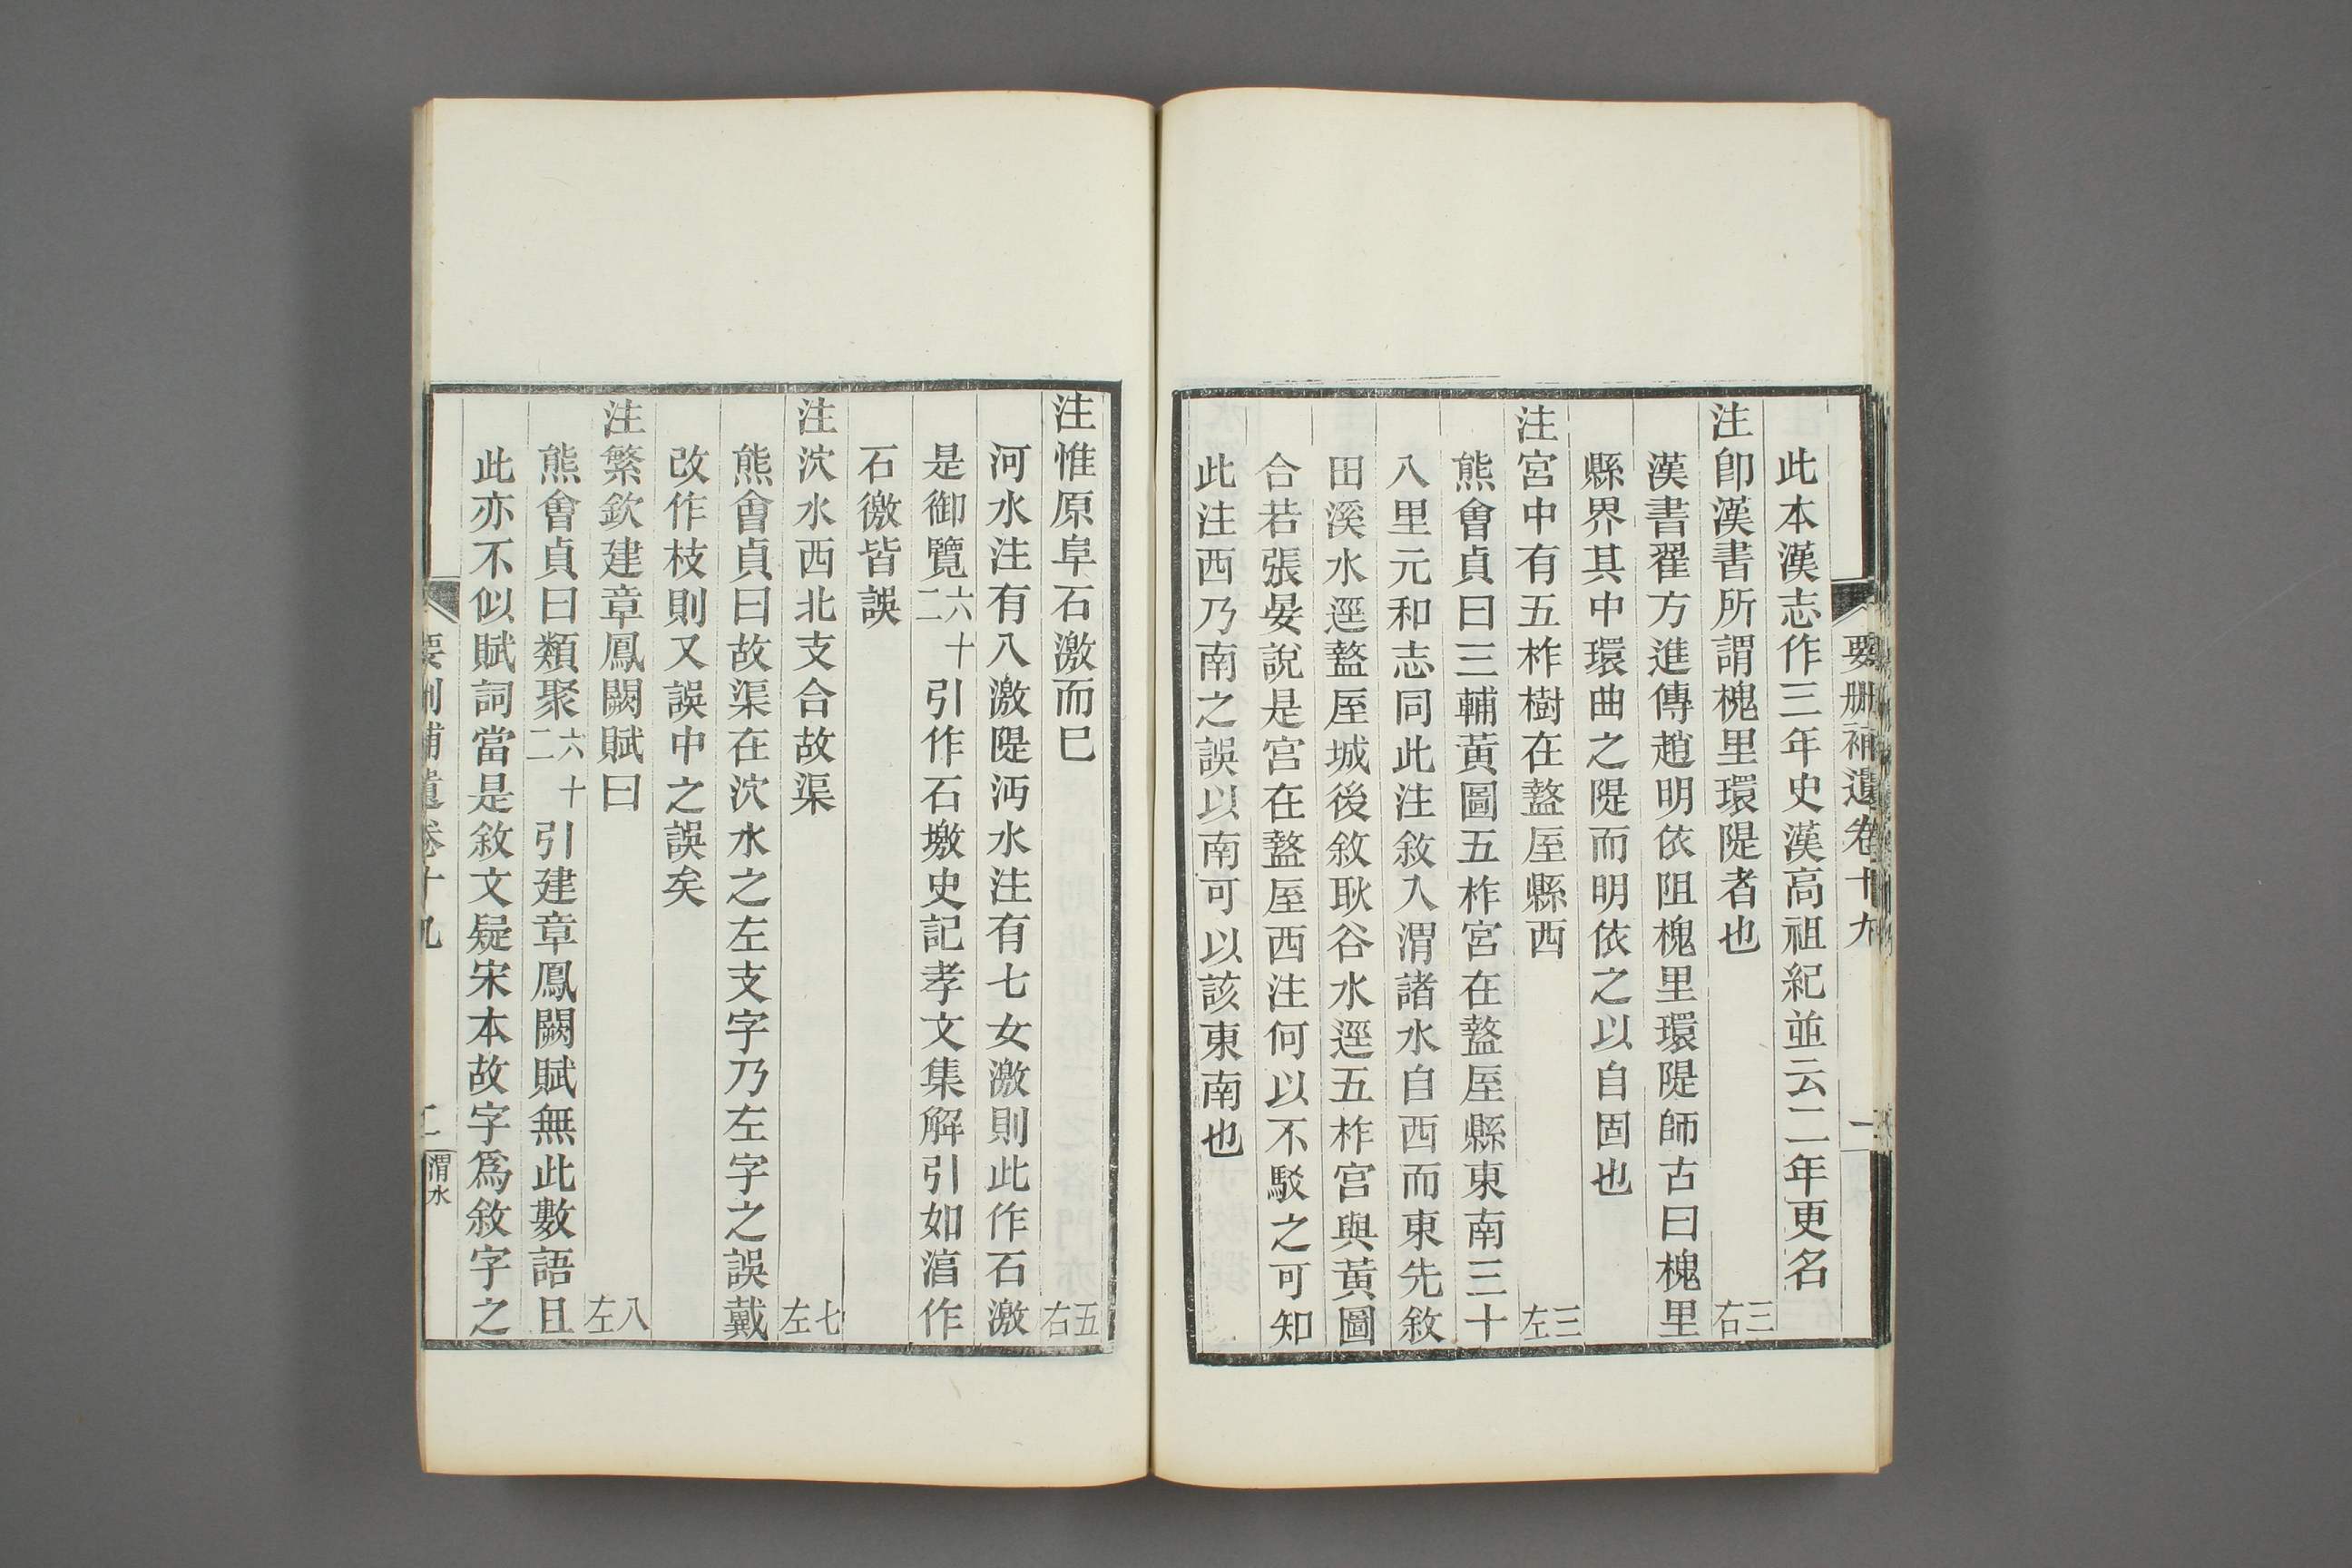 要刪補遺卷十九 一
此本漢志作三年史漢高祖紀並云二年更名
注卽漢書所謂槐里環隄者也 三右
漢書翟方進傳趙明依阻槐里環隄師古曰槐里
縣界其中環曲之隄而明依之以自固也
注宮中有五柞樹在盩厔縣西 三左
熊會貞曰三輔黃圖五柞宮在盩厔縣東南三十
八里元和志同此注敘入渭諸水自西而東先敘
田溪水逕盩厔城後敘耿谷水逕五柞宮與黃圖
合若張晏說是宮在盩厔西注何以不駁之可知
此注西乃南之誤以南可以該東南也
注惟原阜石激而巳 五右
河水注有八激隄沔水注有七女激則此作石激
是御覽六十二引作石墽史記孝文集解引如湻作
石徼皆誤
注沇水西北支合故渠 七左
熊會貞曰故渠在沇水之左支字乃左字之誤戴
改作枝則又誤中之誤矣
注繁欽建章鳳闕賦曰 八左
熊會貞曰類聚六十二引建章鳳闕賦無此數語且
此亦不似賦詞當是敘文疑宋本故字爲敘字之
要刪補遺卷十九 二 渭水